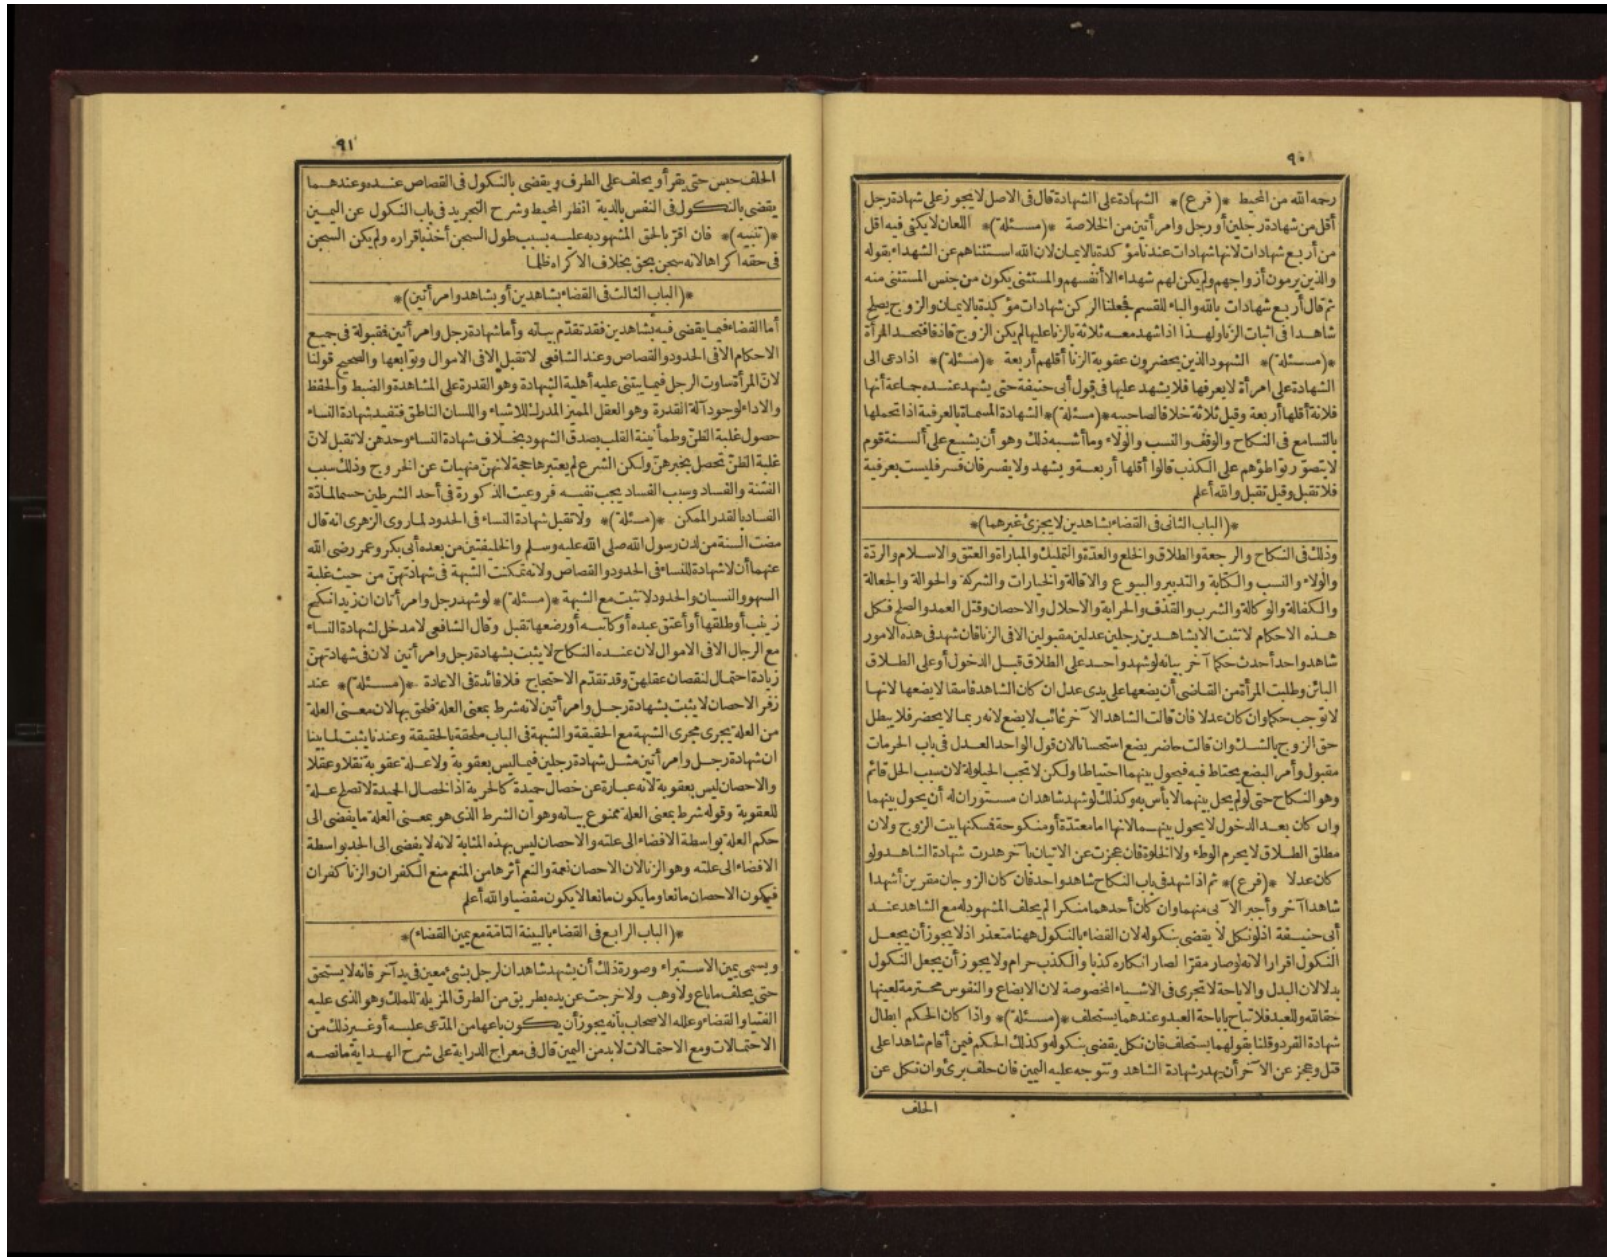 ٩٠
رحمه الله من المحيط *(فرع)* الشهادة على الشهادة قال فى الاصل لا يجوز على شهادة رجل
أقل من شهادة رجلين أو رجل وامرأتين من الخلاصة *(مسئلة)* اللعان لا يكفى فيه اقل
من أربع شهادات لانها شهادات عندنا مؤكدة بالايمان لان الله استثناهم عن الشهداء بقوله
والذين يرمون أزواجهم ولم يكن لهم شهداء الا أنفسهم والمستثنى يكون من جنس المستثنى منه
ثم قال أربع شهادات بالله والباء للقسم فجعلنا الركن شهادات مؤكدة بالايمان والزوج يصلح
شاهدا فى اثبات الزنا ولهذا اذا شهد معه ثلاثة بالزنا عليها لم يكن الزوج قاذفا فتحد المرأة
*(مسئلة)* الشهود الذين يحضرون عقوبة الزنا أقلهم أربعة *(مسئلة)* اذا دعى الى
الشهادة على امرأة لا يعرفها فلا يشهد عليها فى قول أبى حنيفة حتى يشهد عنده جماعة أنها
فلانة أقلها أربعة وقيل ثلاثة خلافا لصاحبيه *(مسئلة)* الشهادة المسماة بالعرفية اذا تحملها
بالتسامع فى النكاح والوقف والنسب والولاء وما أشبه ذلك وهو أن يشيع على ألسنة قوم
لا يتصوّر تواطؤهم على الكذب قالوا أقلها أربعة ويشهد ولا يفسر فان فسر فليست بعرفية
فلا تقبل وقيل تقبل والله أعلم
*(الباب الثانى فى القضاء بشاهدين لا يجزئ غيرهما)*
وذلك فى النكاح والرجعة والطلاق والخلع والعدّة والتمليك والمباراة والعتق والاسلام والردّة
والولاء والنسب والكتابة والتدبير والبيوع والاقالة والخيارات والشركة والحوالة والجعالة
والكفالة والوكالة والشرب والقذف والحرابة والاحلال والاحصان وقتل العمد والصلح فكل
هذه الاحكام لا تثبت الا بشاهدين رجلين عدلين مقبولين الا فى الزنا فان شهد فى هذه الامور
شاهد واحد أحدث حكما آخر بيانه لو شهد واحد على الطلاق قبل الدخول أو على الطلاق
البائن وطلبت المرأة من القاضى أن يضعها على يدى عدل ان كان الشاهد فاسقا لا يضعها لانها
لا توجب حكما وان كان عدلا فان قالت الشاهد الآخر غائب لا يضع لانه ربما لا يحضر فلا يبطل
حق الزوج بالشك وان قالت حاضر يضع استحسانا لان قول الواحد العدل فى باب الحرمات
مقبول وأمر البضع يحتاط فيه فيحول بينهما احتياطا ولكن لا تجب الحيلولة لان سبب الحل قائم
وهو النكاح حتى لو لم يحل بينهما لا بأس به وكذلك لو شهد شاهدان مستوران له أن يحول بينهما
وان كان بعد الدخول لا يحول بينهما لانها اما معتدّة أو منكوحة فسكنها بيت الزوج ولان
مطلق الطلاق لا يحرم الوطء ولا الخلوة فان عجزت عن الاتيان بآخر هدرت شهادة الشاهد ولو
كان عدلا *(فرع)* ثم اذا شهد فى باب النكاح شاهد واحد فان كان الزوجان مقرين أشهدا
شاهدا آخر وأجبر الآبى منهما وان كان أحدهما منكرا لم يحلف المشهود له مع الشاهد عند
أبى حنيفة اذ لو نكل لا يقضى بنكوله لان القضاء بالنكول ههنا متعذر اذ لا يجوز أن يجعل
النكول اقرارا لانه لو صار مقرّا لصار انكاره كذبا والكذب حرام ولا يجوز أن يجعل النكول
بدلا لان البدل والاباحة لا تجرى فى الاشياء المخصوصة لان الابضاع والنفوس محترمة لعينها
حقا لله وللعبد فلا تباح باباحة العبد وعندهما يستحلف *(مسئلة)* واذا كان الحكم ابطال
شهادة الفرد وقلنا بقولهما يستحلف فان نكل يقضى بنكوله وكذلك الحكم فيمن أقام شاهدا على
قتل وعجز عن الآخر أن يهدر شهادة الشاهد وتتوجه عليه اليمين فان حلف برئ وان نكل عن
الحلف
٩١
الحلف حبس حتى يقر أو يحلف على الطرف ويقضى بالنكول فى القصاص عنده وعندهما
يقضى بالنكول فى النفس بالدية انظر المحيط وشرح التجريد فى باب النكول عن اليمين
*(تنبيه)* فان اقرّ بالحق المشهود به عليه بسبب طول السجن أخذ باقراره ولم يكن السجن
فى حقه اكراها لانه سجن بحق بخلاف الاكراه ظلما
*(الباب الثالث فى القضاء بشاهدين أو بشاهد وامرأتين)*
أما القضاء فيما يقضى فيه بشاهدين فقد تقدّم بيانه وأما شهادة رجل وامرأتين فمقبولة فى جميع
الاحكام الا فى الحدود والقصاص وعند الشافعى لا تقبل الا فى الاموال وتوابعها والصحيح قولنا
لانّ المرأة ساوت الرجل فيما يبتنى عليه أهلية الشهادة وهو القدرة على المشاهدة والضبط والحفظ
والاداء لوجود آلة القدرة وهو العقل المميز المدرك للاشياء واللسان الناطق فتفيد شهادة النساء
حصول غلبة الظنّ وطمأنينة القلب بصدق الشهود بخلاف شهادة النساء وحدهن لا تقبل لانّ
غلبة الظنّ تحصل بخبرهنّ ولكن الشرع لم يعتبرها حجة لانهنّ منهيات عن الخروج وذلك سبب
الفتنة والفساد وسبب الفساد يجب نفيه فروعيت الذكورة فى أحد الشرطين حسما لمادّة
الفساد بالقدر الممكن *(مسئلة)* ولا تقبل شهادة النساء فى الحدود لما روى الزهرى انه قال
مضت السنة من لدن رسول الله صلى الله عليه وسلم والخليفتين من بعده أبى بكر وعمر رضى الله
عنهما أن لا شهادة للنساء فى الحدود والقصاص ولانه تمكنت الشبهة فى شهادتهنّ من حيث غلبة
السهو والنسيان والحدود لا تثبت مع الشبهة *(مسئلة)* لو شهد رجل وامرأتان ان زيدا نكح
زينب أو طلقها أو أعتق عبده أو كاتبه أو رضعها تقبل وقال الشافعى لا مدخل لشهادة النساء
مع الرجال الا فى الاموال لان عنده النكاح لا يثبت بشهادة رجل وامرأتين لان فى شهادتهنّ
زيادة احتمال لنقصان عقلهنّ وقد تقدّم الاحتجاج فلا فائدة فى الاعادة *(مسئلة)* عند
زفر الاحصان لا يثبت بشهادة رجل وامرأتين لانه شرط بمعنى العلة فلحق بها لان معنى العلة
من العلة يجرى مجرى الشبهة مع الحقيقة والشبهة فى الباب ملحقة بالحقيقة وعندنا يثبت لما بينا
ان شهادة رجل وامرأتين مثل شهادة رجلين فيما ليس بعقوبة ولا علة عقوبة نقلا وعقلا
والاحصان ليس بعقوبة لانه عبارة عن خصال حميدة كالحرية اذ الخصال الحميدة لا تصلح علة
للعقوبة وقوله شرط بمعنى العلة ممنوع بيانه وهو أن الشرط الذى هو بمعنى العلة ما يفضى الى
حكم العلة بواسطة الافضاء الى علته والاحصان ليس بهذه المثابة لانه لا يفضى الى الحد بواسطة
الافضاء الى علته وهو الزنا لان الاحصان نعمة والنعم أثرها من المنعم منع الكفران والزنا كفران
فيكون الاحصان مانعا وما يكون مانعا لا يكون مفضيا والله أعلم
*(الباب الرابع فى القضاء بالبينة التامّة مع يمين القضاء)*
ويسمى يمين الاستبراء وصورة ذلك أن يشهد شاهدان لرجل بشئ معين فى يد آخر فانه لا يستحق
حتى يحلف ما باع ولا وهب ولا خرجت عن يده بطريق من الطرق المزيلة للملك وهو الذى عليه
الفتيا والقضاء وعلله الاصحاب بأنه يجوز أن يكون باعها من المدّعى عليه أو غير ذلك من
الاحتمالات ومع الاحتمالات لا بد من اليمين قال فى معراج الدراية على شرح الهداية ما نصه